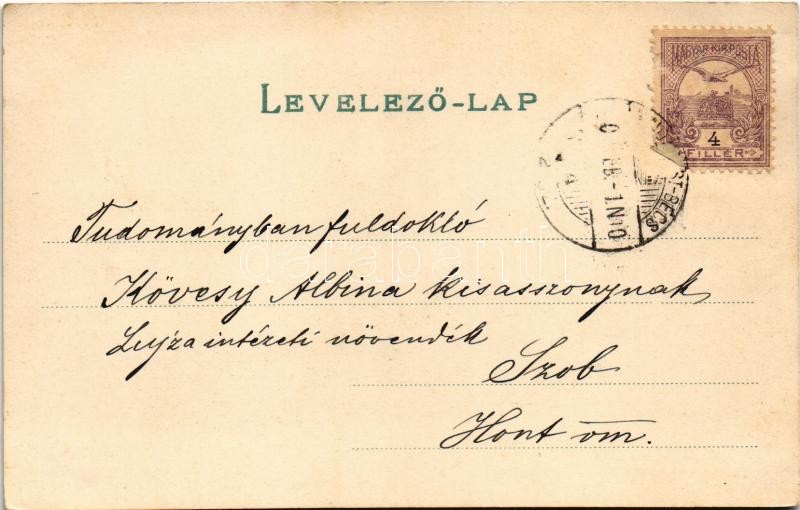 MAGYAR KIR. POSTA
4
FILLÉR
LEVELEZŐ-LAP
-BÉCS
Tudományban fuldokló
Kövesy Albina kisasszonynak
Lujza intézeti növendék
Szob
Hont vm.
darabanth